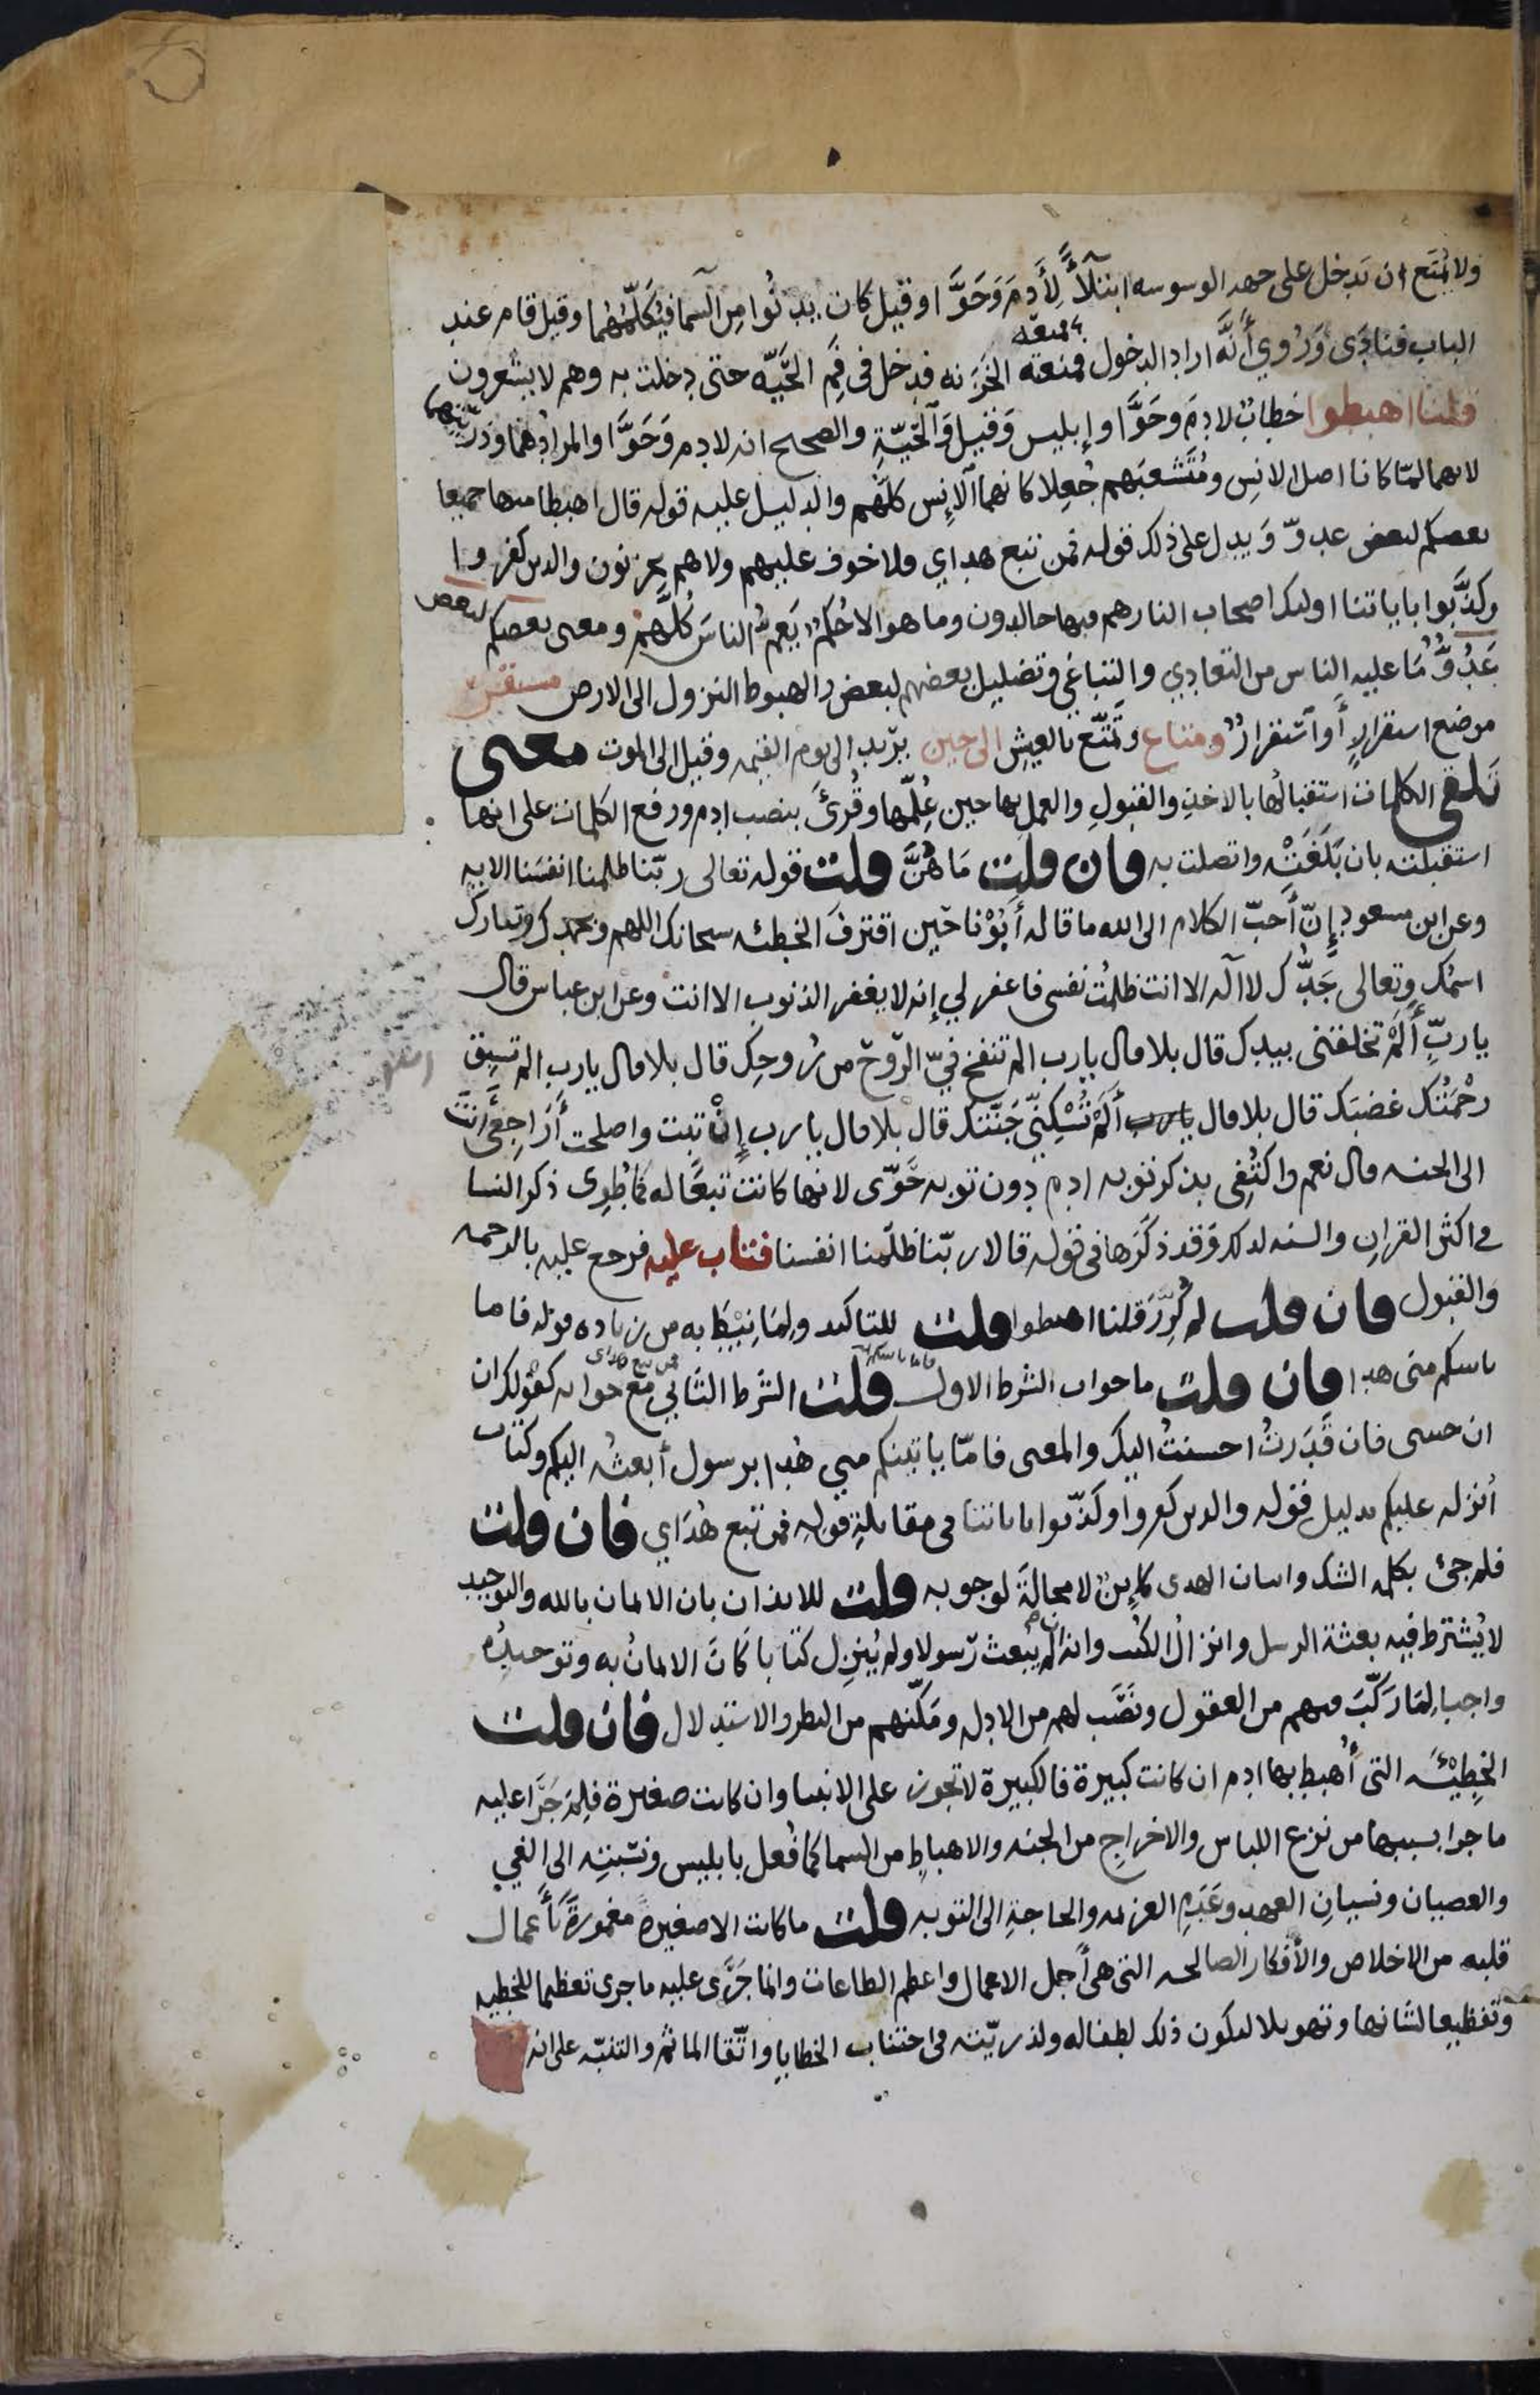 ولا يُمتَع ان يَدخل على جهه الوسوسه ابتلآءً لِأَدمَ وَحَوَّا وقيل كان يدنُوا مِن السما فيُكلّمُهُما وقيل قام عند
الباب فنادَى وَرُوِي أَنَّه اراد الدخول فمنعته الخَزَنه فدخل في فَمِ الحَيَّه حتى دخلت به وهم لا يشعرون
قلنا اهبطوا خطابٌ لادمَ وحَوَّا وإبليس وَقيل وَالحَيّةِ والصحيح انه لادم وَحَوَّا والمرادُ هما وذريتهما
لانهما لمّا كانا اصل الانِس ومُتَشعبَهم جُعِلا كانهما الإنِس كلهُم والدليل عليه قوله قال اهبطا منها جميعا
بعضكم لبعض عدوّ وَيدل على ذلك قوله فمن تبع هداي فلا خوف عليهم ولا هم يحزنون والذين كفروا
وكذّبوا باياتنا اوليك اصحاب النار هم فيها خالدون وما هو الا حُكمٌ يَعمُّ الناسَ كُلَّهم ومعنى بعضكم لبعض
عَدُوٌّ مَا عليه الناس من التعادي والتباغي وتضليل بعضهم لبعض والهبوط النزول الى الارض مستقر
موضع استقرارٍ أو اَستقرارٌ ومتاع وتمتّع بالعيِش الى حين يريد الى يوم القيمه وقيل الى الموت معنى
تلقي الكلمات استقبالُها بالاخذِ والقبولِ والعمل بها حين عُلِّمها وقُرئ بنصب ادم ورفع الكلمات على انها
استقبلته بان بَلَغَتْه واتصلت به فان قلت مَا هُنَّ قلت قوله تعالى ربّنا ظلمنا انفسَنا الايه
وعن ابن مسعود إنّ أحبّ الكلام الى الله ما قاله أَبُوْنا حين اقترفَ الخطئه سبحانك اللهم وبحمدك وتبارك
اسمُك وتعالى جَدُّك لا اله الا انت ظلمتُ نفسى فاغفر لي إنه لا يغفر الذنوب الا انت وعن ابن عباس قال
يا ربِّ أَلَمْ تخلقنى بيدك قال بلا قال يارب الم تنفخ فيّ الرّوحَ من رُوحِك قال بلا قال يارب الم تسبِق
رحْمَتُك غضبَك قال بلا قال يارب أَلَمْ تُسْكِنّي جَنّتَك قال بلا قال يا رب إِنْ تبت واصلحت أَرَاجِعِي أنتَ
الى الجنه قال نعم واكتُفِى بذكر توبه ادم دون توبه حَوّى لانها كانت تبعًا له كما طُوِى ذكر النسا
فى اكثر القرانِ والسنه لذلك وَقد ذكَرَها فى قوله قالا ربّنا ظلمنا انفسنا فتاب عليه فرجع عليه بالرحمه
والقبول فان قلت لم كُرِّرَ قلنا اهبطوا قلت للتاكيد ولِمَا نِيْطَ به من زياده قوله فاما
ياتينكم منى هدا فان قلت ما جواب الشرط الاول قلت الشرط الثانِي مع جوابه كقولك ان
ان جيتنى فان قَدَرتُ احسنتُ اليك والمعنى فامّا ياتينكم مني هُدا برسول أبعثُه اليكم وكتاب
اُنزله عليكم بدليل قوله والذين كفروا وكَذّبوا باياتنا فى مقابلةِ قوله فمن تبع هُدَاي فان قلت
فلم جئ بكلمه الشك واتيان الهدى كاينٌ لا محالةَ لوجوبه قلت للايذان بان الايمان بالله والتوحيد
لا يُشترط فيه بعثة الرسل وانزال الكُتب وانه إن لم يبعث رَسولا ولم يُنزِل كتابا كَانَ الايمانُ به وتوحيدُه
واجبا لِمَا رَكّبَ فيهم من العقول ونَصَّب لهم من الادله ومَكّنهم من النظر والاستدلال فان قلت
الخِطِيْئَه التى أُهبط بها ادم ان كانت كبيرة فالكبيرة لا تجوز على الانبيا وان كانت صغيرة فلِمَ جَرَا عليه
ما جرا بسببها من نزع اللباس والاخراجِ من الجنه والاهباطِ من السما كما فُعل بابليس ونسْبتِه الى الغي
والعصيان ونسيانِ العهد وعَدَمِ العزيمه والحاجةِ الى التوبه قلت ما كانت الا صغيرةً مغمورةً بأَعمال
قلبه من الاخلاص والأفكار الصالحه التى هى أجل الاعمال واعظم الطاعات وانما جَرَى عليه ما جرى تعظيما للخطيه
وتفظيعا لشانها وتهويلا ليكون ذلك لطفا له ولذريّته فى اجتناب الخطايا واتّقا الماثم والتنبّه على انه